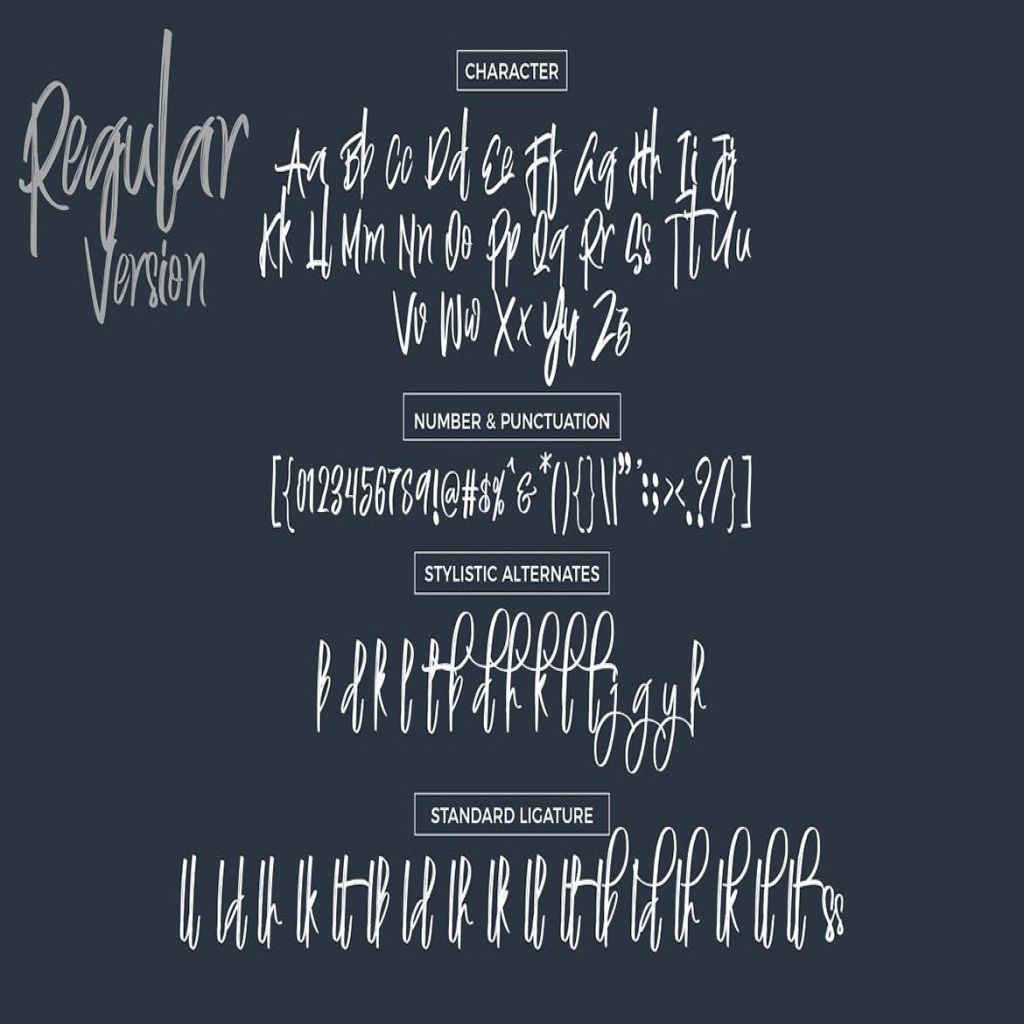 Regular
Version
CHARACTER
Aa Bb Cc Dd Ee Ff Gg Hh Ii Jj
Kk Ll Mm Nn Oo Pp Qq Rr Ss Tt Uu
Vv Ww Xx Yy Zz
NUMBER & PUNCTUATION
[{0123456789!@#$%^&*(){}\|"':;><,.?/}]
STYLISTIC ALTERNATES
b d k l t b d h k l t j g y h
STANDARD LIGATURE